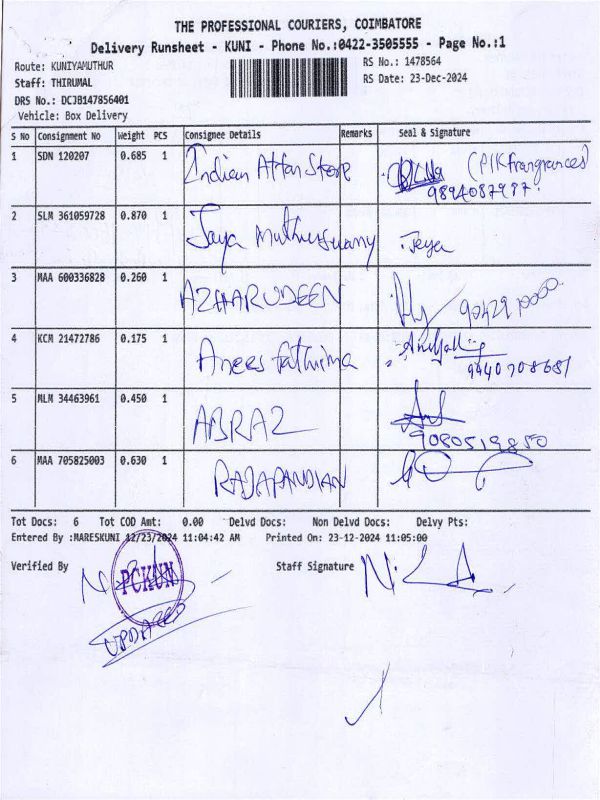 THE PROFESSIONAL COURIERS, COIMBATORE
Delivery Runsheet - KUNI - Phone No.:0422-3505555 - Page No.:1
Route: KUNIYAMUTHUR RS No.: 1478564
Staff: THIRUMAL RS Date: 23-Dec-2024
DRS No.: DCJB147856401
Vehicle: Box Delivery
S No Consignment No Weight PCS Consignee Details Remarks Seal & Signature
1 SDN 120207 0.685 1 Indian Attar Store (PIK frangrances)
9894087987.
2 SLM 361059728 0.870 1 Jaya Jeya
3 MAA 600336828 0.260 1 AZHARUDEEN
4 KCM 21472786 0.175 1 Anees fathima
9440708681
5 MLM 34463961 0.450 1 ABRAZ
9080519850
6 MAA 705825003 0.630 1 RAJAPANDIAN
Tot Docs: 6 Tot COD Amt: 0.00 Delvd Docs: Non Delvd Docs: Delvy Pts:
Entered By :MARESKUNI 12/23/2024 11:04:42 AM Printed On: 23-12-2024 11:05:00
Verified By Staff Signature
PCKUN
UPDATED